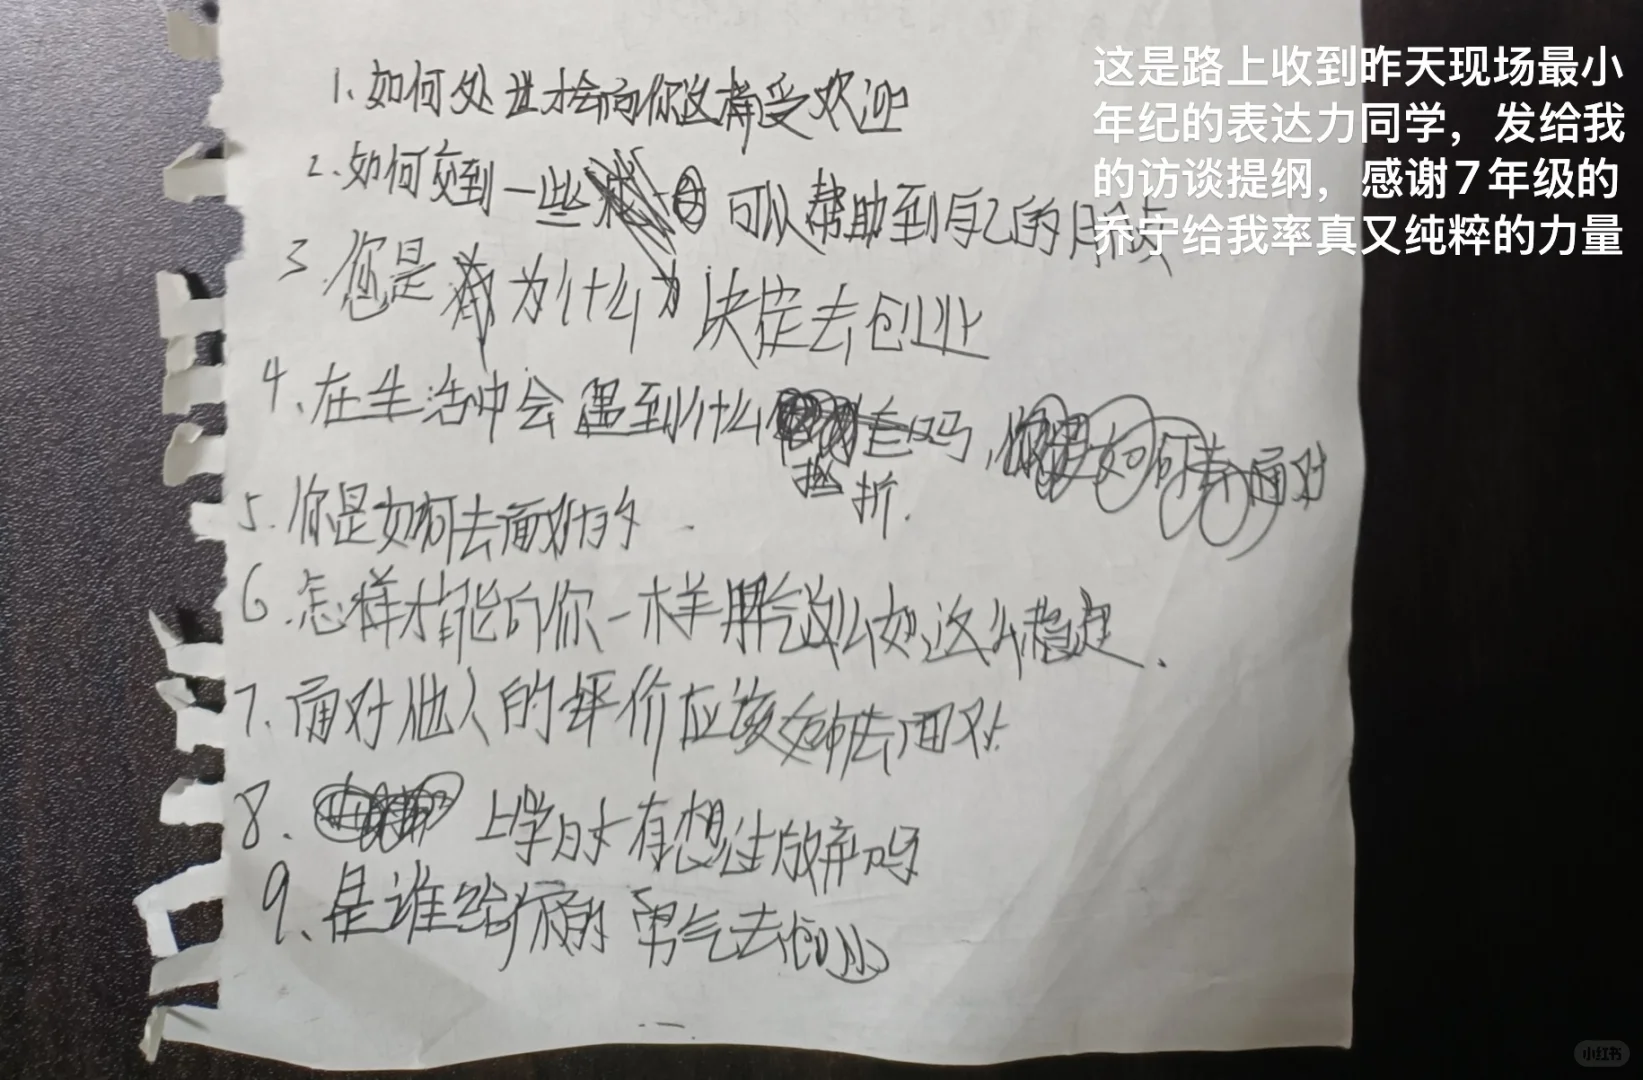 这是路上收到昨天现场最小
年纪的表达力同学，发给我
的访谈提纲，感谢7年级的
乔宁给我率真又纯粹的力量
1.如何处世才会向你这样受欢迎
2.如何交到一些 可以帮助到自己的朋友
3 你是 为什么 决定去创业
4、在生活中会遇到什么 吗，
挫折.
5.你是如何去面对的
6.怎样才能向你一样脾气这么好,这么稳定.
7.面对他人的评价应该如何去面对
8、 上学时有想过放弃吗
9、是谁给你的 勇气去创业
小红书